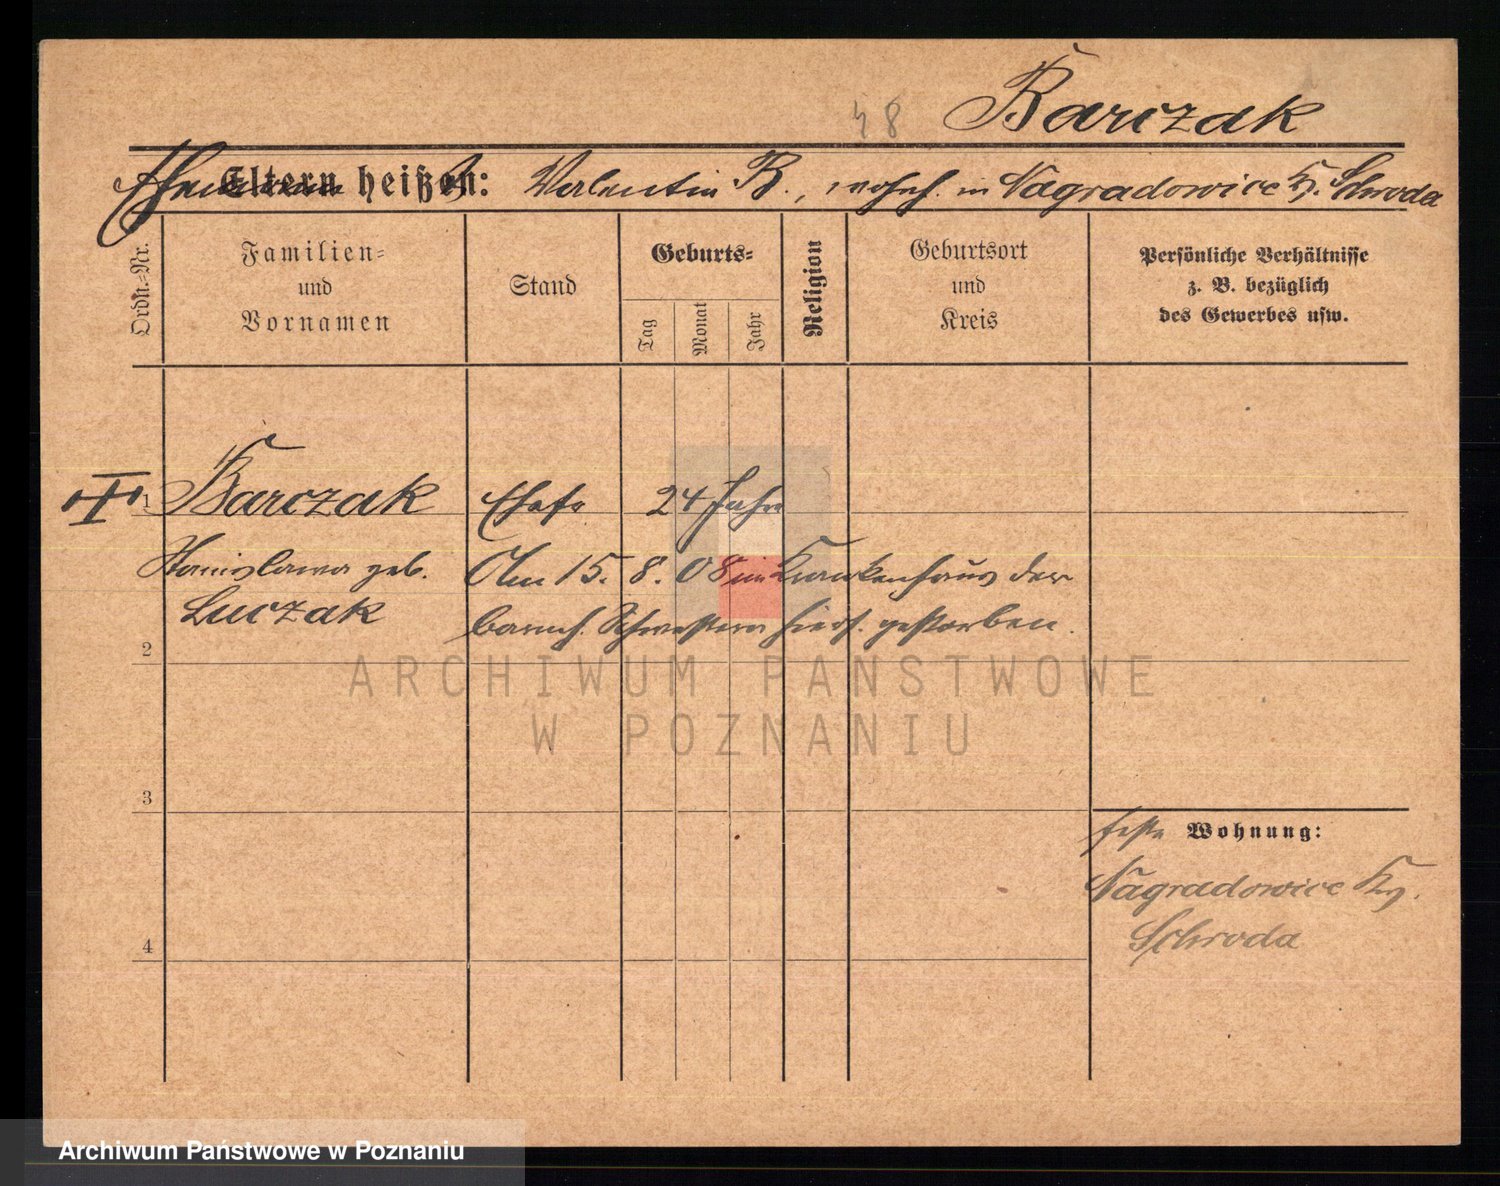 48 Barczak
Ehemann Eltern heißen: Valentin B., wohnh. in Nagradowice Kr. Schroda
Ordn.-Nr.
Familien-
und
Vornamen
Stand
Geburts-
Tag
Monat
Jahr
Religion
Geburtsort
und
Kreis
Persönliche Verhältnisse
z. B. bezüglich
des Gewerbes usw.
1 Barczak Ehefr 24 Jahre
Stanislawa geb. Am 15. 8. 08 im Krankenhaus der
Luczak barmh. Schwestern hiers. gestorben.
2
ARCHIWUM PAŃSTWOWE
W POZNANIU
3
feste Wohnung:
Nagradowice Kr.
Schroda
4
Archiwum Państwowe w Poznaniu